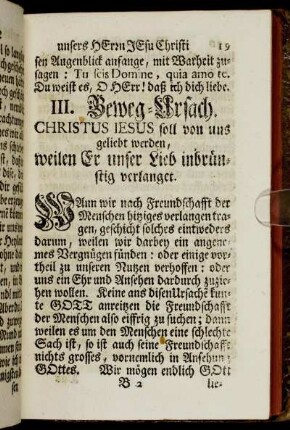 unsers HErrn JEsu Christi 19
sen Augenblick anfange, mit Warheit zu-
sagen : Tu scis Domine, quia amo te.
Du weist es, O HErr! daß ich dich liebe.
III. Beweg-Ursach.
CHRISTUS IESUS soll von uns
geliebt werden,
weilen Er unser Lieb inbrün-
stig verlanget.
WAnn wir nach Freundschafft der
Menschen hitziges verlangen tra-
gen, geschicht solches eintweders
darum, weilen wir darbey ein angene-
mes Vergnügen fünden : oder einige vor-
theil zu unseren Nutzen verhoffen : oder
uns ein Ehr und Ansehen dardurch zuzie-
hen wollen. Keine aus disen Ursachē kun-
te GOTT anreitzen die Freundschafft
der Menschen also eiffrig zu suchen; dann
weilen es um den Menschen eine schlechte
Sach ist, so ist auch seine Freundschafft
nichts grosses, vornemlich in Ansehung
GOttes. Wir mögen endlich GOtt
B 2 lie-